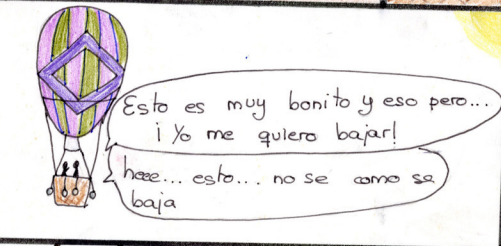 Esto es muy bonito y eso pero...
¡ Yo me quiero bajar!
heee... esto... no se como se
baja